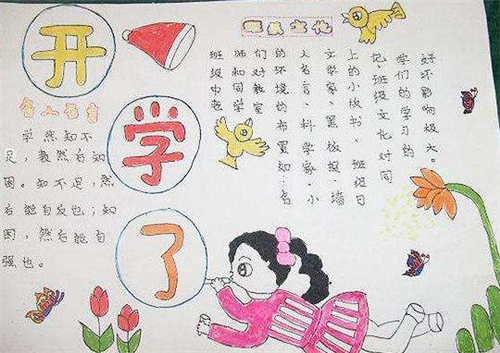 开
学
了
班级文化
名人名言
学然知不
足，教然后知
困。知不足，然
后能自反也；知
困，然后能自
强也。
班级中老
师和同学
们对教室
的环境的布置如：名
人名言、科学家、小
文学家、黑板报、墙
上的小板书、班级日
记、班级文化对同
学们的学习的
好坏影响极大。